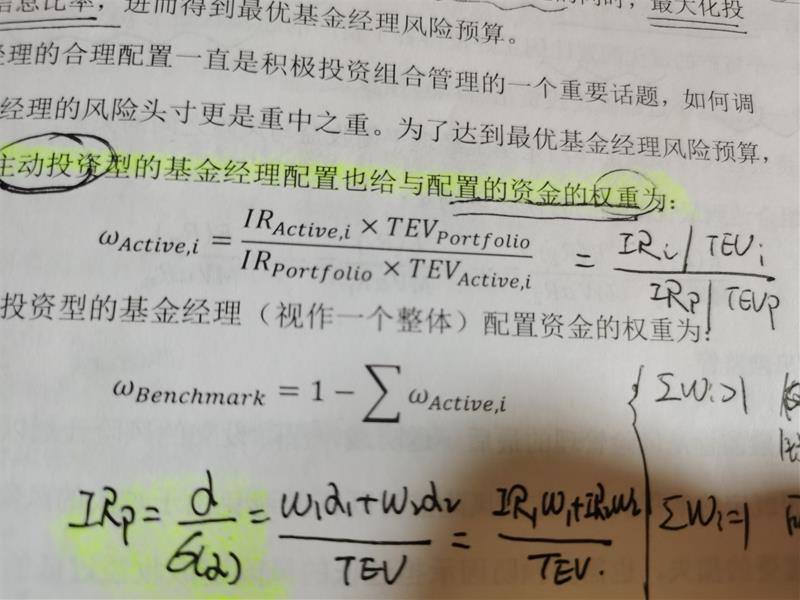 信息比率，进而得到最优基金经理风险预算。 同时，最大化投
经理的合理配置一直是积极投资组合管理的一个重要话题，如何调
经理的风险头寸更是重中之重。为了达到最优基金经理风险预算，
主动投资型的基金经理配置也给与配置的资金的权重为：
ω_{Active,i} = \frac{IR_{Active,i} × TEV_{Portfolio}}{IR_{Portfolio} × TEV_{Active,i}} = \frac{IR_i | TEV_i}{IR_P | TEV_P}
投资型的基金经理（视作一个整体）配置资金的权重为：
ω_{Benchmark} = 1 − ∑ ω_{Active,i}
ΣW_i>1
IR_P = \frac{α}{σ(α)} = \frac{W_1α_1+W_2α_2}{TEV} = \frac{IR_1W_1+IR_2W_2}{TEV.}
ΣW_i=1